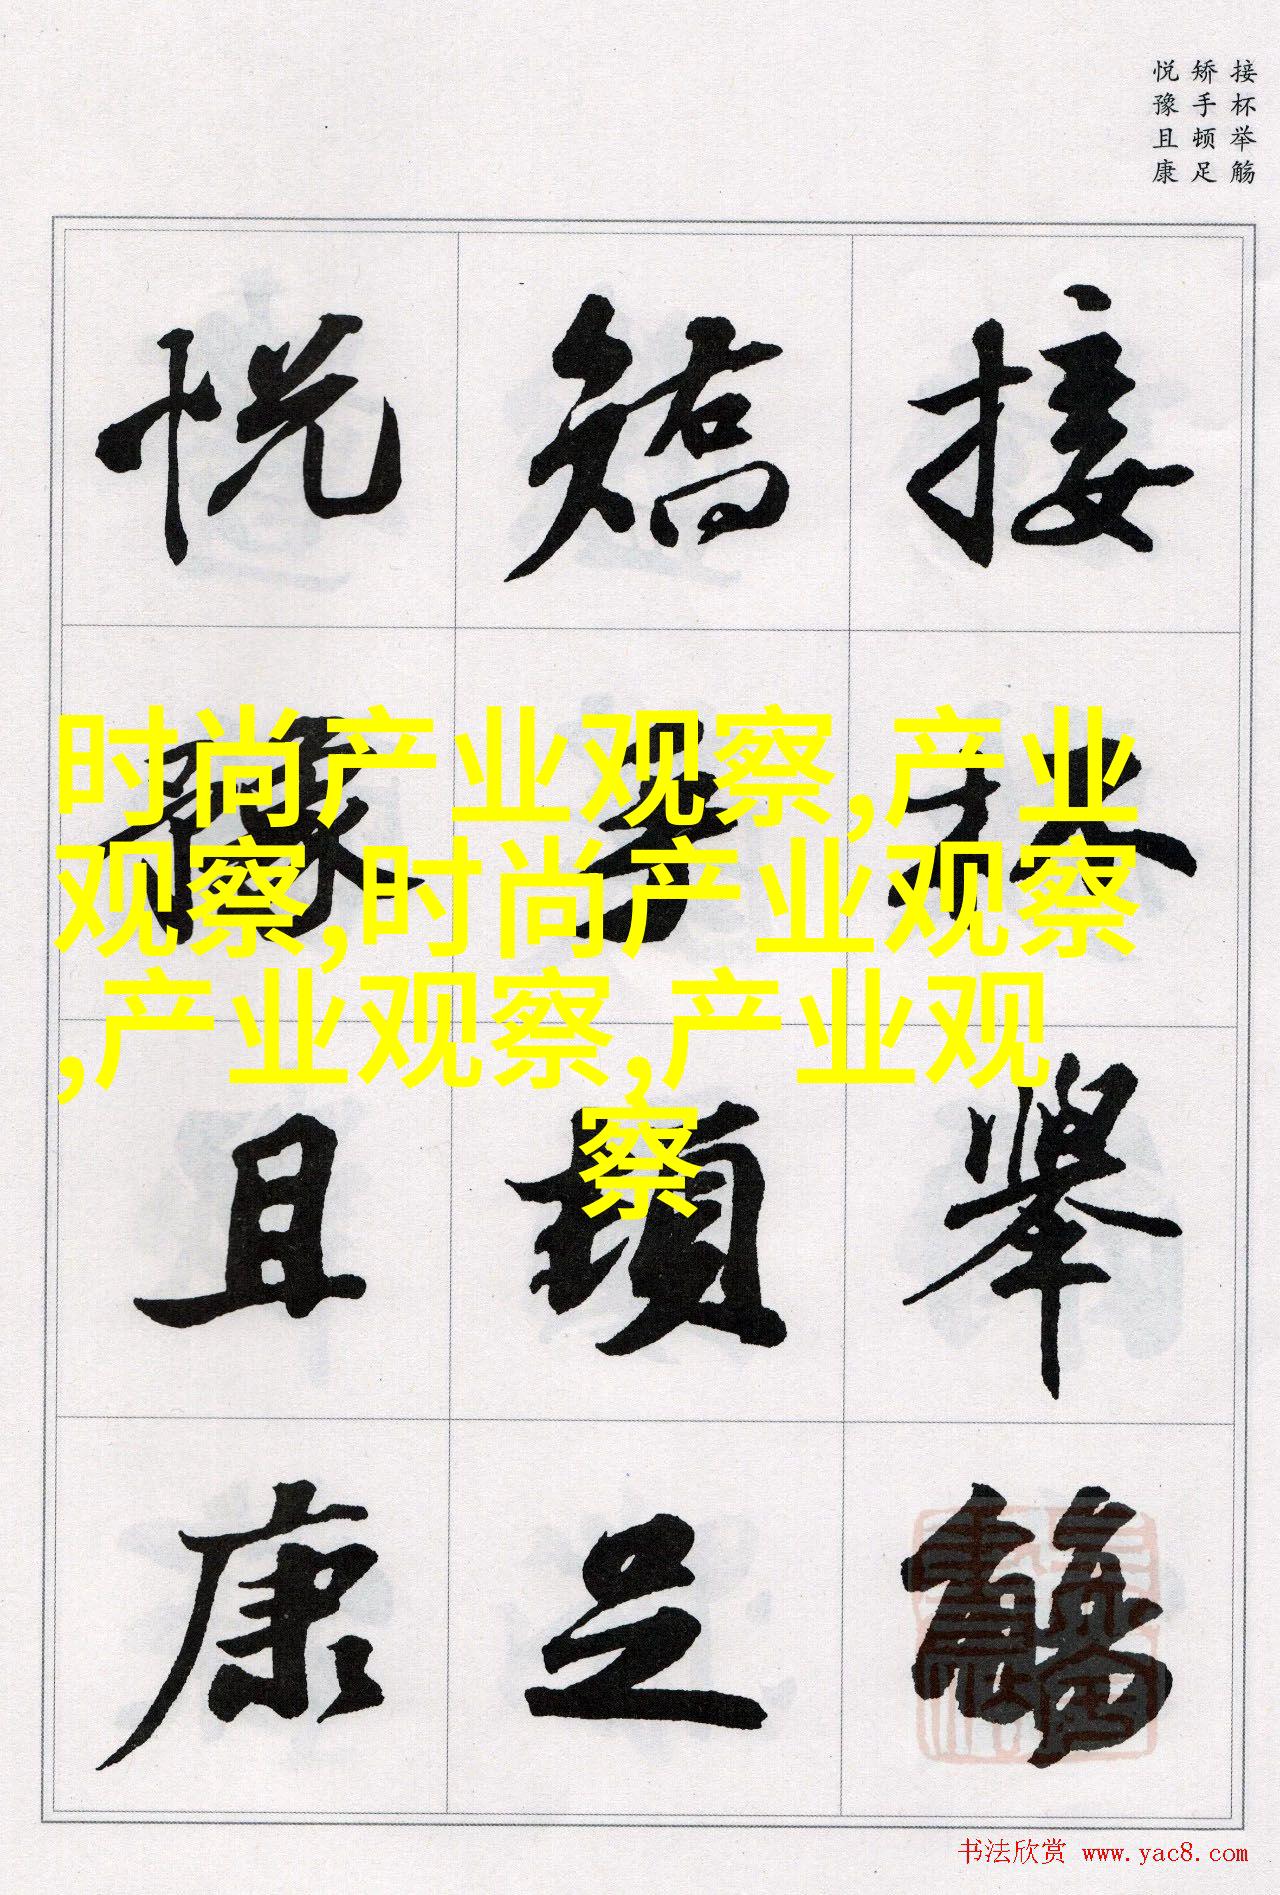 接杯举觞
矫手顿足
悦豫且康
接杯舉觴
矯手頓足
悦豫且康
时尚产业观察,产业
观察,时尚产业观察
,产业观察,产业观
察
书法欣赏 www.yac8.com